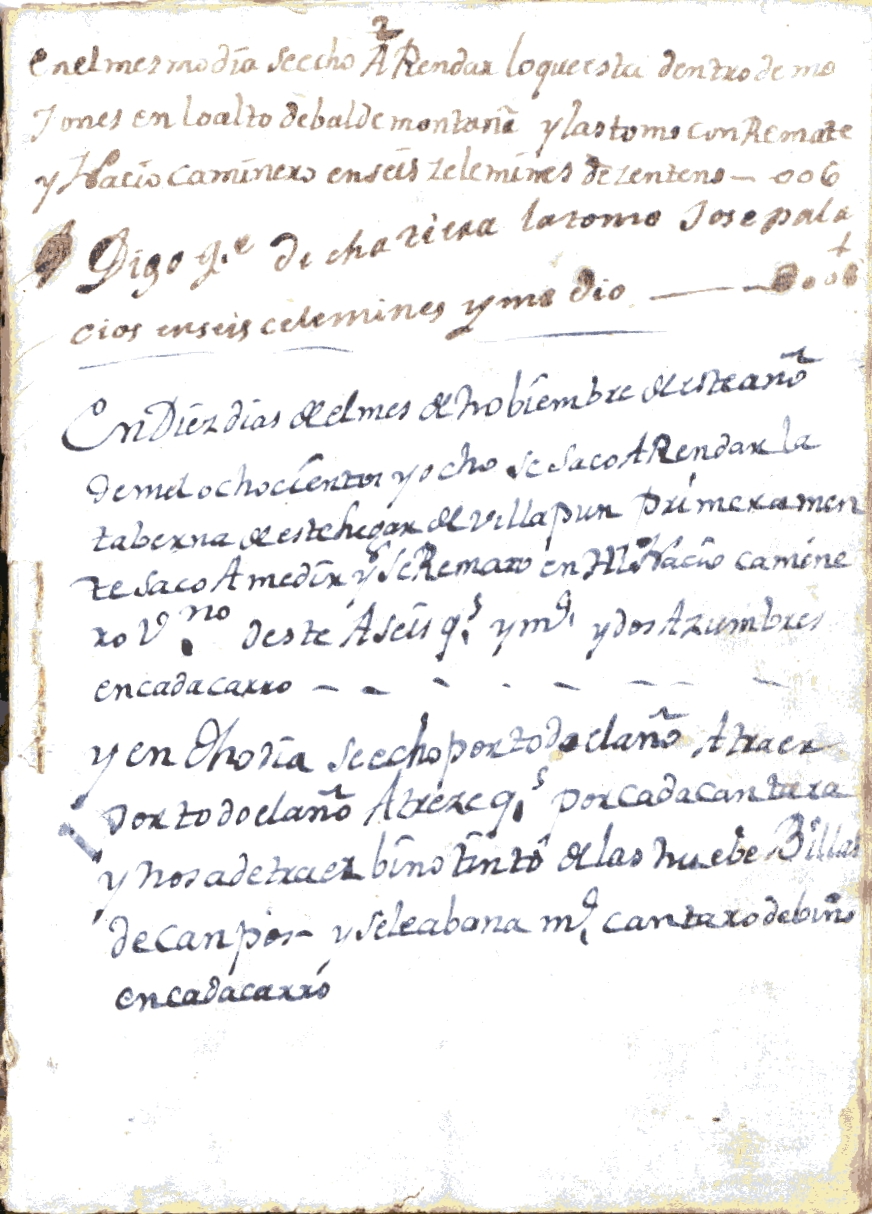 2
en el mesmo dia se echo A Rendar lo que esta dentro de mo
Jones en lo alto de baldemontañ y las tomo con Remate
y Nacio caminero en seis zelemines de zenteno — 006
Digo q.e dicha tiera la tomo Jose pala
cios en seis celemines y medio —
En Diez dias del mes de Nobiembre de este año
de mel ochocientos y ocho se Saco A Rendar la
taberna de este lugar de Villapun primeramen
te Saco A medir y Se Remato en Nacio camine
ro V.no de este A seis q.s y m.o y dos Azumbres
en cada carro — — — — — — —
y en Dho dia Se echo por todo el año A traer
por todo el año A treze q.s por cada cantara
y nos a de traer bino tinto de las nuebe Billas
de canpos y se le abona m.o cantaro de bino
en cada carro